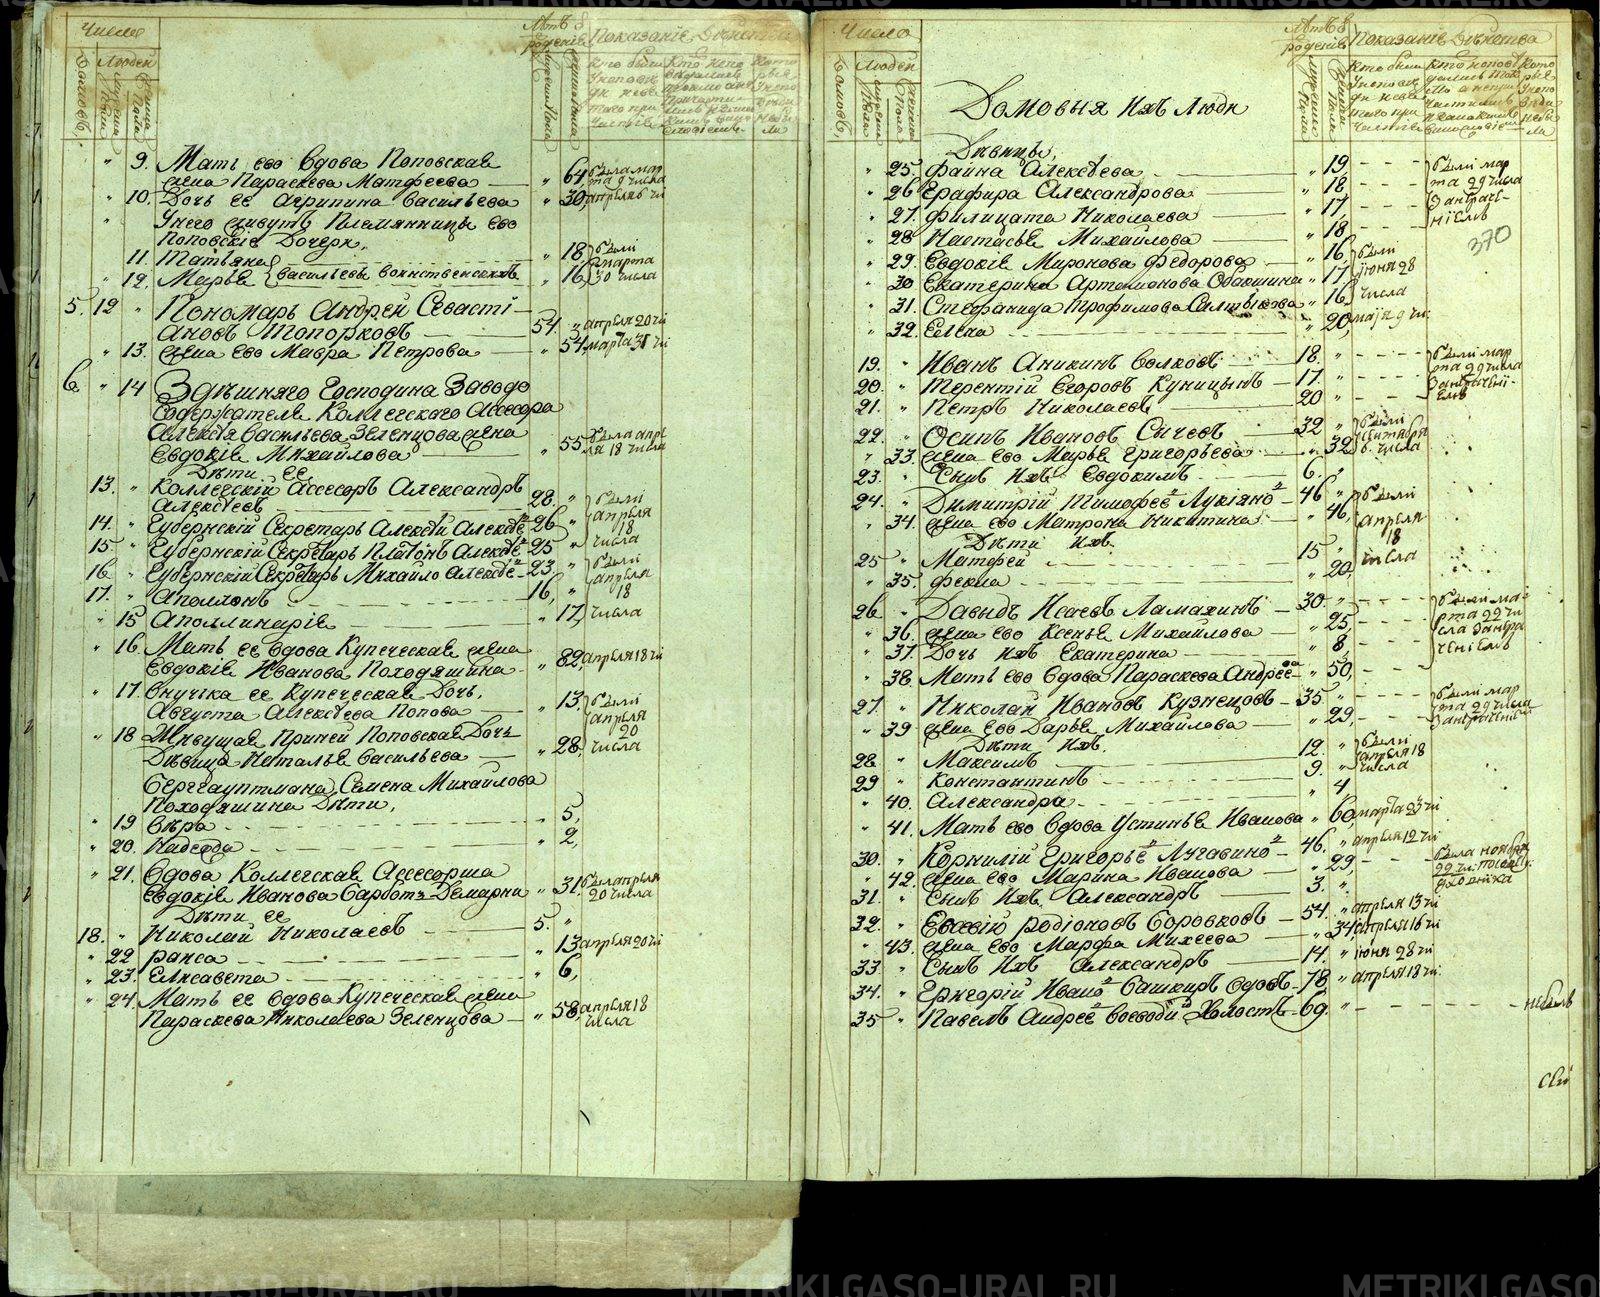 Число
Людей
Лѣтъ
рожденія
Показаніе Бытства
9. Мать его Вдова Поповская
жена Параскева Матфеева — " 64, была мар
та 9 числа
10. Дочь ее Агрипина Васильева " 30, апрѣля 6 чи
Унего живутъ Племянницы его
Поповскіе Дочери,
11. Татьяна " 18 были
марта
30 числа
12. Марья Васильевы воинственскихъ " 16
5. 12 " Пономарь Андрей Севасті-
ановъ Топорковъ — 54 " апрѣля 20 чи
" 13. жена его Мавра Петрова — " 54, марта 31 чи
6. " 14 Здѣшняго Господина Заводо
Содержателя Коллежскаго Ассесора
Алексѣя Васильева Зеленцова жена
Евдокія Михайлова — " 55 была апрѣ
ля 18 числа
Дѣти ее
13. " Коллежскій Ассесоръ Александръ
Алексѣевъ 28. " были
апрѣля
18
числа
14. " Губернскій Секретарь Алексѣй Алексѣе 26 "
15 " Губернскій Секретарь Платонъ Алексѣе 25 "
16 " Губернскій Секретарь Михайло Алексѣе 23. " были
апрѣля
18
числа
17. " Аполлонъ 16, "
" 15 Аполлинарія " 17,
" 16. Мать ее Вдова Купеческая жена
Евдокія Иванова Походяшина " 82, апрѣля 18 чи
" 17. Внучька ее Купеческая Дочь,
Августа Алексѣева Попова — " 13, были
апрѣля
20
числа
" 18 Живущая Приней Поповская Дочь
Дѣвица Наталья Васильева — " 28,
Берггауптмана Семена Михайлова
Походяшина Дѣти,
" 19 Вѣра " 5,
" 20. Надежда " 2,
" 21. Вдова Коллежская Ассесорша
Евдокія Иванова Барботъ-Демарни " 31. была апрѣля
20 числа
Дѣти ее
18. " Николай Николаевъ — 5. "
" 22 Раиса " 13 апрѣля 20 чи
" 23. Елисавета " 6,
" 24. Мать ее Вдова Купеческая жена
Параскева Николаева Зеленцова — " 58, апрѣля 18
числа
Число
Людей
рожденія
Показаніе Бытства
Домовыя Ихъ Люди
370
Дѣвицы,
" 25. Фаина Алексѣева " 19, были мар
та 29 числа
" 26 Ерафира Александрова " 18
" 27. Филицата Николаева " 17,
" 28 Настасья Михайлова " 18
" 29. Евдокія Миронова Федорова " 16, были
іюня 28
числа
" 30 Екатерина Артамонова " 17,
" 31. Стефанида Трофимова Салтыкова " 16,
" 32. Елена " 20, маія 9 чи.
19. " Иванъ Аникинъ Волковъ 18. " были мар
та 29 числа
20. " Терентій Егоровъ Куницынъ — 17. "
21. " Петръ Николаевъ 20 "
22. " Осипъ Ивановъ Сычевъ — 32 " были
сентября
6. числа
" 33. жена его Марья Григорьева " 32,
23. " Сынъ Ихъ Евдокимъ 6. "
24. " Димитрій Тимофее Лукіяно — 46 " были
апрѣля
18
числа
" 34. жена его Матрона Никитина " 46,
Дѣти Ихъ
25 " Матфей 15 "
" 35. Фекла " 20,
26 " Давыдъ Исаевъ Ламахинъ — 30. " были ма-
рта 22 чи
сла
" 36. жена его Ксенья Михайлова " 25,
" 37. Дочь Ихъ Екатерина " 8,
" 38. Мать его Вдова Параскева Андрѣева " 50,
27. " Николай Ивановъ Кузнецовъ — 35 " были мар
та 29 числа
" 39 жена его Дарья Михайлова " 29,
Дѣти Ихъ.
28 " Максимъ 12. " были
апрѣля 18
числа
29 " Константинъ 9. "
" 40. Александра " 4
" 41. Мать его Вдова Устинья Иванова " 60, марта 23 чи
30. " Корнилій Григорье Лугавино — 46. " апрѣля 12 чи
" 42. жена его Марина Иванова " 29, была ноября
22 чи.
31. " Сынъ Ихъ Александръ 3. "
32. " Евсевій Родіоновъ Боровковъ — 54. " апрѣля 13 чи
" 43. жена его Марфа Михеева " 34, апрѣля 16 чи
33. " Сынъ Ихъ Александръ 14. " іюня 28 чи
34. " Григорій Ивано Башкиръ Вдовъ — 78, " апрѣля 18 чи.
35 " Павелъ Андрее Воеводи Холостъ — 69. " небылъ
METRIKI.GASO-URAL.RU